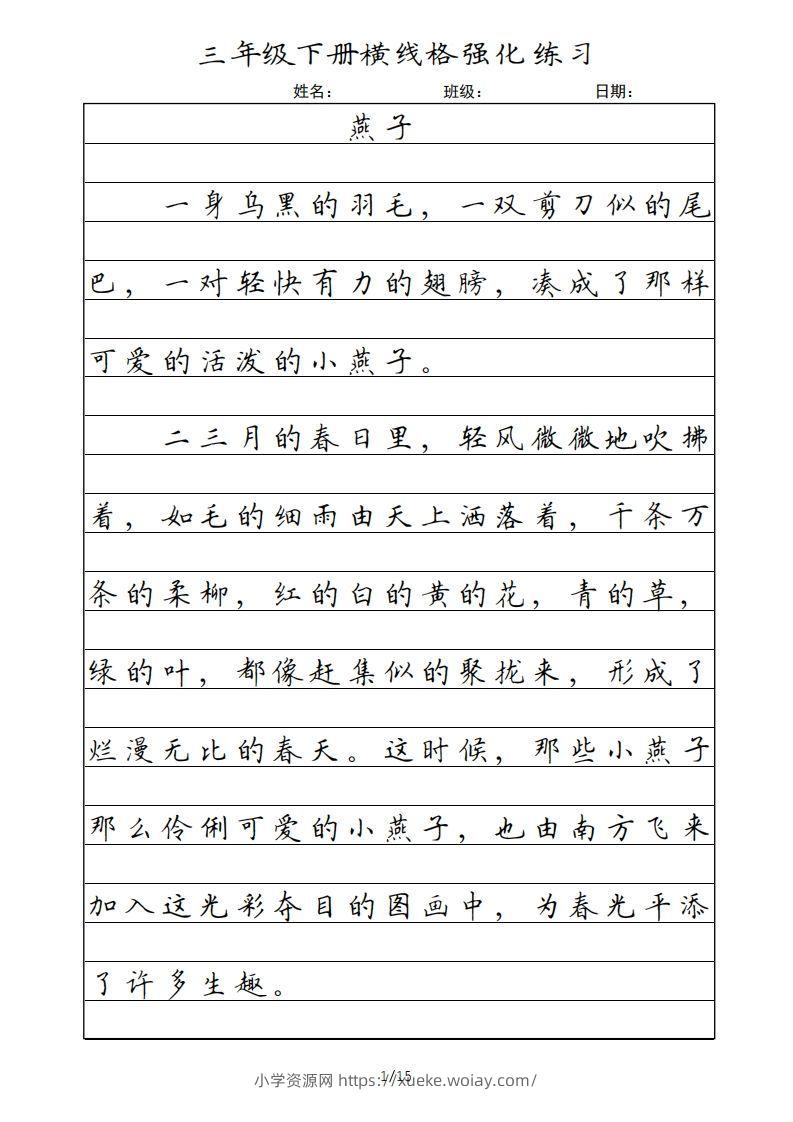 三年级下册横线格强化练习
姓名： 班级： 日期：
燕子
一身乌黑的羽毛，一双剪刀似的尾
巴，一对轻快有力的翅膀，凑成了那样
可爱的活泼的小燕子。
二三月的春日里，轻风微微地吹拂
着，如毛的细雨由天上洒落着，千条万
条的柔柳，红的白的黄的花，青的草，
绿的叶，都像赶集似的聚拢来，形成了
烂漫无比的春天。这时候，那些小燕子
那么伶俐可爱的小燕子，也由南方飞来
加入这光彩夺目的图画中，为春光平添
了许多生趣。
1/15
小学资源网 https://xueke.woiay.com/